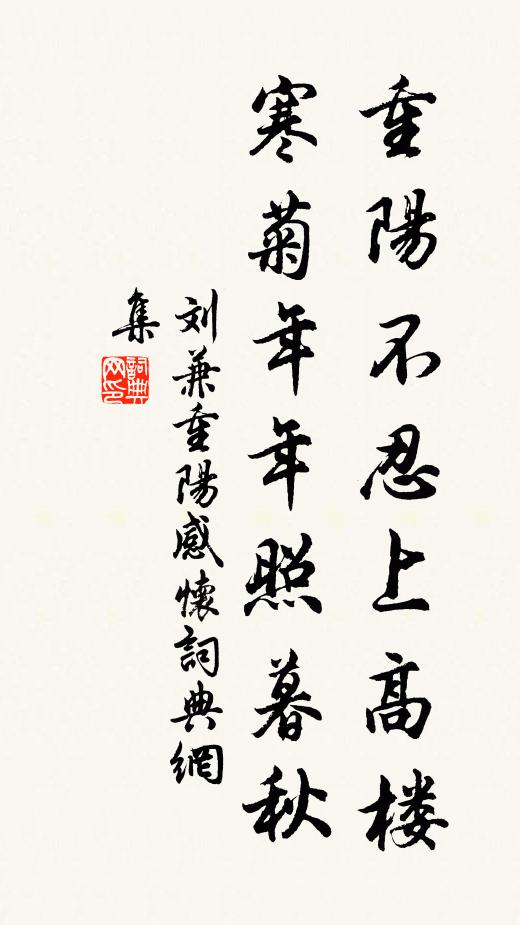 重陽不忍上高楼
寒菊年年照暮秋
刘兼重陽感懷詞典網
集
詞典
网印